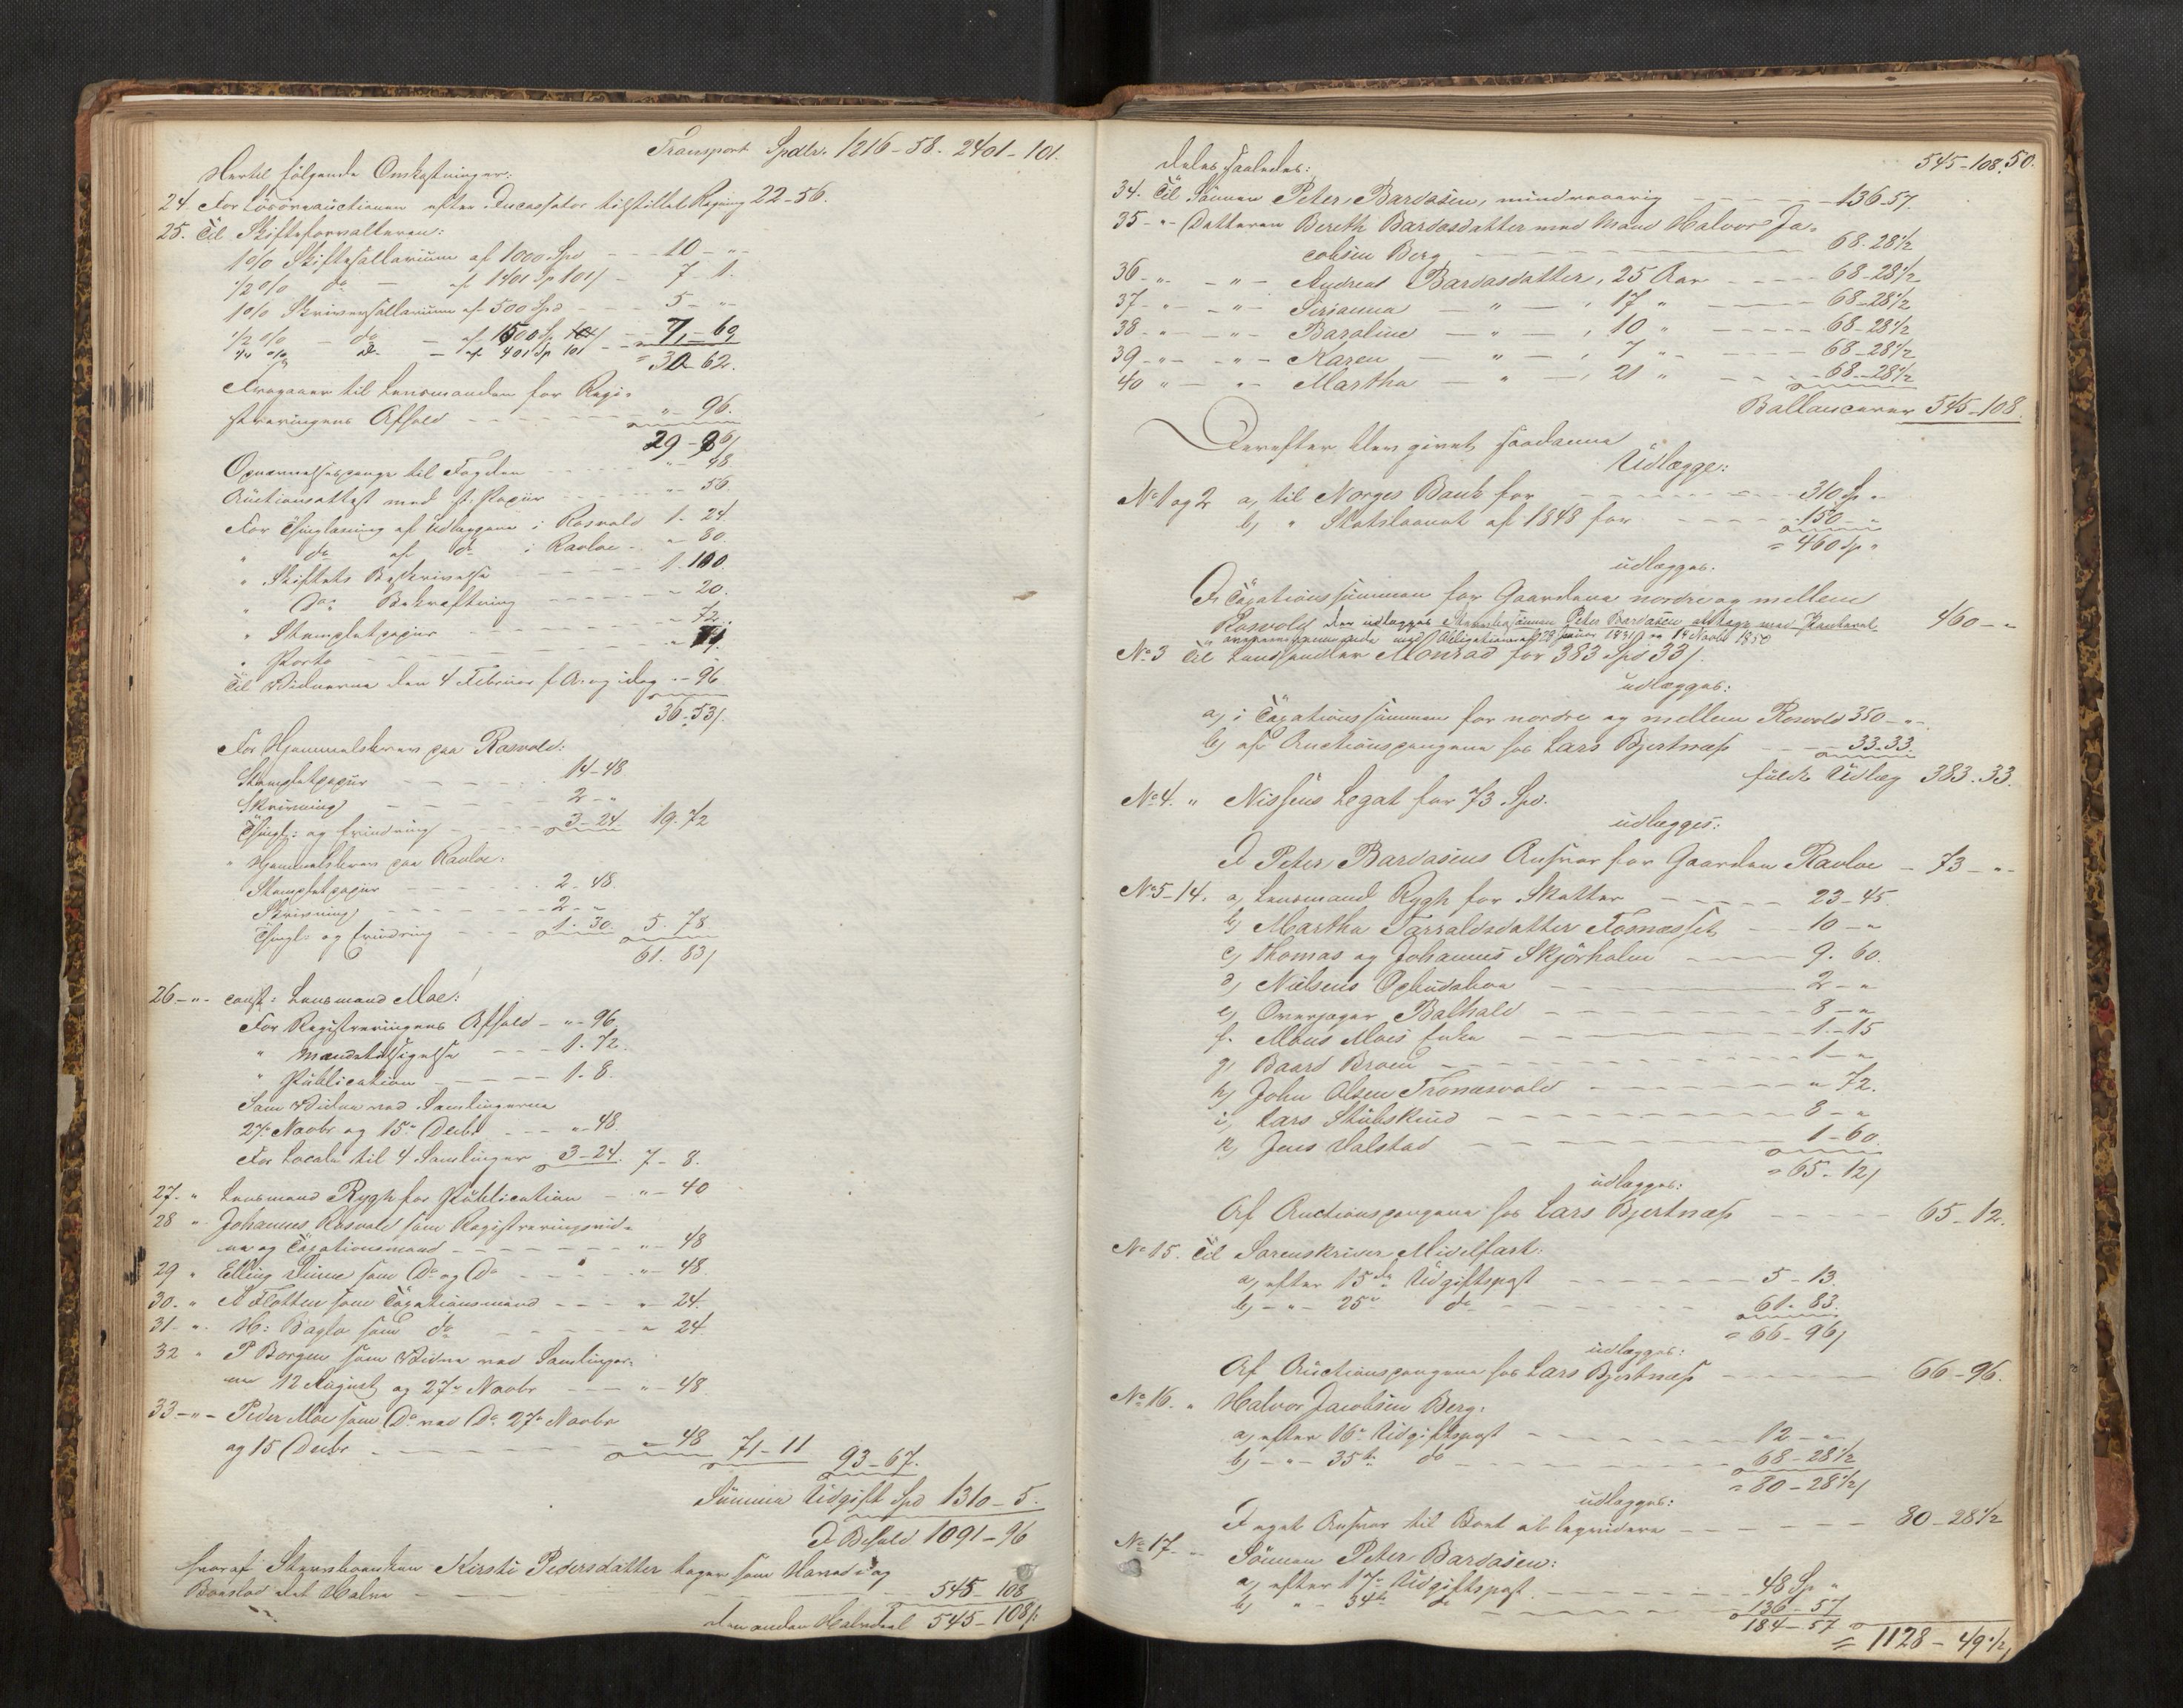 Transport Spdlr. 1216-58. 2401-101.
Hertil følgende Omkostninger:
24. For Løsøreauctionen efter Incassators tilstillet Regning 22-56.
25. Til Skifteforvalteren:
1 % Skiftesallarium af 1000 Spd - - - 10 - "-
1/2 % do - af 1401 Sp 101/ - 7 - 1.
1 % Skriversallarium af 500 Spd - - - 5 - "-
1/2 % - do - af 1500 Sp - - - 7,- 69
1/4 % do - af 401 Sp 101
= 30-62.
Fragaaer til Lensmanden for Regi-
streringens Afhold - - - "- 96.
29-86/
Opnævnelsespenge til Fogden - - - "- 48
Auctionsattest med st. Papiir - - - "- 56
For Thinglæsning af Udlæggene i Rosvold 1. 24.
" do af do i Ravloe - "- 80.
" Skiftets Beskrivelse - - - 1. 100.
" Do Bekræftning - - - " 20.
" Stempletpapiir - - - " 72.
" Porto - - -
Til Vidnerne den 4 Februar f. A. og idag "- 96
36-53/.
For Hjemmelsbrev paa Rosvold:
Stempletpapiir - - - 14-48
Skrivning - - - 2 - "
Thingl: og Erindring - - - 3-24. 19.72
" Hjemmelsbrev paa Ravloe:
Stempletpapiir - - - 2-48.
Skrivning - - - 2 - "
Thingl: og Erindring - - - 1-30. 5. 78
61. 83/
26 -"- const: Lensmand Moe:
For Registreringens Afhold - "- 96
" Mandetilsigelse - - - 1. 72.
" Publication - - - 1-8.
Som Vidne ved Samlingerne
27de Novbr og 15de Decbr - - - "- 48.
For Locale til 4 Samlinger 3-24. 7-8.
27. " Lensmand Rygh for Publication - "- 40
28 " Johannes Rosvold som Registreringsvid-
ne og Taxationsmand - - - "- 48
29 " Elling som Do og Do - - - "- 48
30. " A Flotten som Taxationsmand - - - " 24.
31 - " H: Baglo som do - - - " 24
32 " P Borgen som Vidne ved Samlinger-
ne 12 August og 27de Novbr - - - "- 48
33 -"- Peder Moe som Do ved Do 27de Novbr
og 15 Decbr - - - " 48 71-11 93-67.
Summa Udgift Spd 1310-5.
I Behold 1091-96
hvoraf Sterv­boenken Kirsti Pedersdatter tager som Hoved- og
Boeslod det Halve - - - 545-108
den anden Halvdeel 545-108/:
50.
deles saaledes: 545-108.
34. Til Sønnen Peter Bardosen, mindreaarig - - - 136-57
35 -"- Datteren Bereth Bardosdatter med Mand Halvor Ja-
cobsen Berg - - - 68-28 1/2
36 -"- -"- Andrea Bardosdatter, 25 Aar - - - 68-28 1/2
37 -"- -"- Sirianna - " -, 17 " - - - 68-28 1/2
38 -"- -"- Baroline - " -, 10 " - - - 68-28 1/2
39 -"- -"- Karen - " -, 7 " - - - 68-28 1/2
40 " - "- Martha - " -, 21 " - - - 68-28 1/2
Ballancerer 545-108.
Derefter blev givet saadanne
Udlægge:
No 1 og 2 a, til Norges Bank for - - - 310 Sp "
b, " Statslaanet af 1848 for - - - 150 "
= 460 Sp "
udlægges:
I Taxationssummen for Gaardene nordre og mellem
Rosvold der udlægges Peter Bardosen med Panteret 460 - "
Obligationer 28 Januar 1831 og 14 Novbr 1850
No 3 Til Landhandler Monrad for 383 Spd 33/.
udlægges:
a, i Taxationssummen for nordre og mellem Rosvold 350 - "-
b, af Auctionspengene hos Lars Bjertnæss - - - 33-33.
fuldt Udlæg 383. 33.
No 4. " Nissens Legat for 73 Spd.
udlægges:
I Peter Bardosens Ansvar for Gaarden Ravloe - 73 - "-
No 5-14. a, Lensmand Rygh for Skatter - - - 23-45.
b, Martha Tarraldsdatter Fosnæsset - - - 10 - "
c, Thomas og Johannes Skjørholm - - - 9. 60.
d, Nielsens Opbudsboe - - - 2 - "
e, Overjæger Balhald - - - 8 - "
f. Mons Mois Enke - - - 1.-15
g, Baard Broem - - - 1 - "
h, John Olsen Tromsvold - - - " 72.
i, Lars Stubskind - - - 8 - "
k, Jens Valstad - - - 1-60.
= 65-12/
udlægges:
Af Auctionspengene hos Lars Bjertnæss - - - 65-12.
No 15. Til Sorenskriver Midelfart:
a, efter 15de Udgiftspost - - - 5-13.
b, -"- 25de do - - - 61-83.
= 66-96/
udlægges:
Af Auctionspengene hos Lars Bjertnæss - - - 66-96.
No 16. " Halvor Jacobsen Berg:
a, efter 16de Udgiftspost - - - 12 - "
b, -"- 35te do - - - 68-28 1/2
= 80-28 1/2/
udlægges:
I eget Ansvar til Boet at liqvidere - - - 80-28 1/2
No 17. - Sønnen Peter Bardosen:
a, efter 17de Udgiftspost - - - 48 Sp "
b, " - 34te do - - - 136-57
184-57
= 1128-49 1/2/